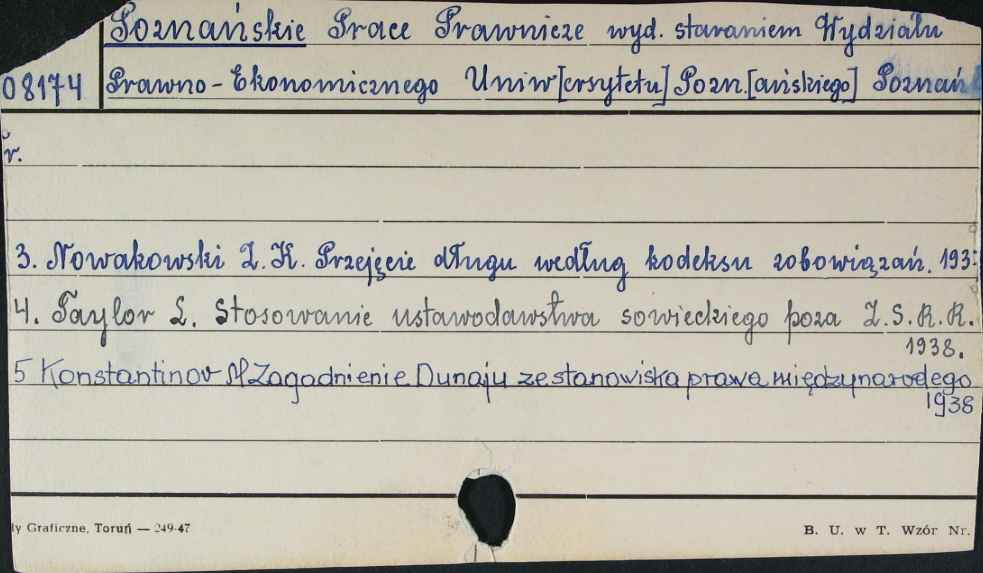 Poznańskie Prace Prawnicze wyd. staraniem Wydziału
08174 Prawno-Ekonomicznego Uniw[ersytetu] Pozn.[ańskiego] Poznań
r.
3. Nowakowski Z. K. Przejęcie długu według kodeksu zobowiązań. 193
4. Taylor L. Stosowanie ustawodawstwa sowieckiego poza Z.S.R.R.
1938.
5 Konstantinov M Zagadnienie Dunaju ze stanowiska prawa międzynarodego
1938
ły Graficzne, Toruń — 249-47
B. U. w T. Wzór Nr.